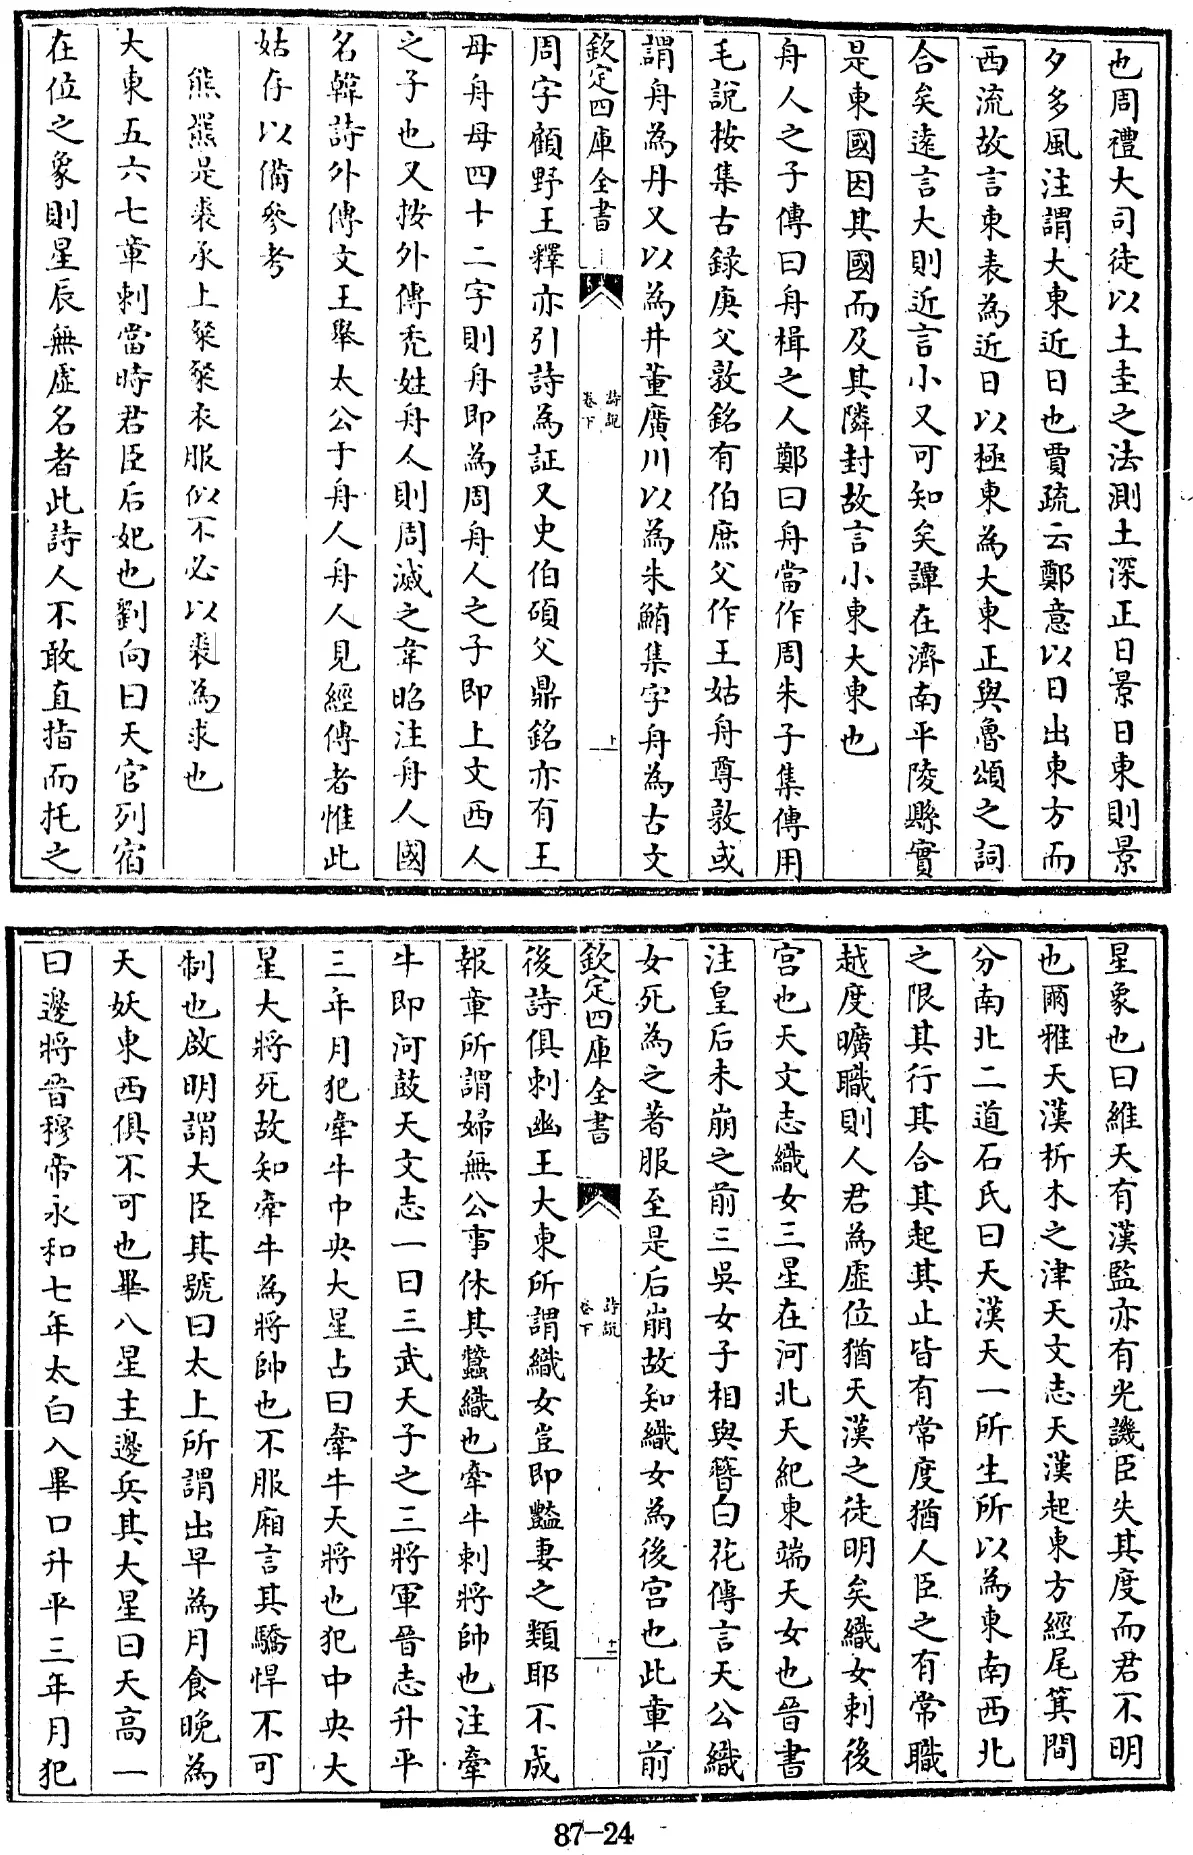 也周禮大司徒以土圭之法測土深正日景日東則景
夕多風注謂大東近日也賈疏云鄭意以日出東方而
西流故言東表為近日以極東為大東正與魯頌之詞
合矣遠言大則近言小又可知矣譚在濟南平陵縣實
是東國因其國而及其隣封故言小東大東也
舟人之子傳曰舟楫之人鄭曰舟當作周朱子集傳用
毛說按集古録庚父敦銘有伯庶父作王姑舟尊敦或
謂舟為丹又以為井董廣川以為朱鮪集字舟為古文
欽定四庫全書
詩說
卷下
上
周字顧野王釋亦引詩為証又史伯碩父鼎銘亦有王
母舟母四十二字則舟即為周舟人之子即上文西人
之子也又按外傳秃姓舟人則周滅之韋昭注舟人國
名韓詩外傳文王舉太公于舟人舟人見經傳者惟此
姑存以備參考
熊羆是裘承上粲粲衣服似不必以裘為求也
大東五六七章刺當時君臣后妃也劉向曰天官列宿
在位之象則星辰無虛名者此詩人不敢直指而托之
星象也曰維天有漢監亦有光譏臣失其度而君不明
也爾雅天漢析木之津天文志天漢起東方經尾箕間
分南北二道石氏曰天漢天一所生所以為東南西北
之限其行其合其起其止皆有常度猶人臣之有常職
越度曠職則人君為虛位猶天漢之徒明矣織女刺後
宮也天文志織女三星在河北天紀東端天女也晉書
注皇后未崩之前三吳女子相與簪白花傳言天公織
女死為之著服至是后崩故知織女為後宮也此章前
欽定四庫全書
詩說
卷下
十一
後詩俱刺幽王大東所謂織女豈即豔妻之類耶不成
報章所謂婦無公事休其蠶織也牽牛刺將帥也注牽
牛即河鼓天文志一曰三武天子之三將軍晉志升平
三年月犯牽牛中央大星占曰牽牛天將也犯中央大
星大將死故知牽牛為將帥也不服廂言其驕悍不可
制也啟明謂大臣其號曰太上所謂出早為月食晚為
天妖東西俱不可也畢八星主邊兵其大星曰天高一
曰邊將晉穆帝永和七年太白入畢口升平三年月犯
87-24